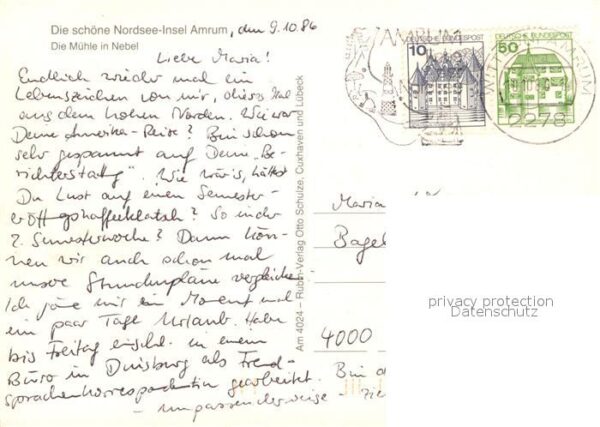 Die schöne Nordsee-Insel Amrum, den 9.10.86
Die Mühle in Nebel
Liebe Maria!
Endlich wieder mal ein
Lebenszeichen von mir, dieses Mal
aus dem hohen Norden. Wie war
Deine Amerika-Reise? Bin schon
sehr gespannt auf Deine "Be-
richterstattg". Wie wär's, hättest
Du Lust auf einen Semester-
eröffgskaffeeklatsch? So in der
2. Semesterwoche? Dann kön-
nen wir auch schon mal
unsere Stundenpläne vergleichen.
Ich gönne mir im Moment mal
ein paar Tage Urlaub. Habe
bis Freitag einschl. in einem
Büro in Duisburg als Fremd-
sprachenkorrespondentin gearbeitet.
- umpassenderweise -
Am 4024 – Rubin-Verlag Otto Schulze, Cuxhaven und Lübeck
AMRUM
10
DEUTSCHE BUNDESPOST
50
DEUTSCHE BUNDESPOST
AMRUM
2278
Maria
Bagel
4000
Bin
privacy protection
Datenschutz